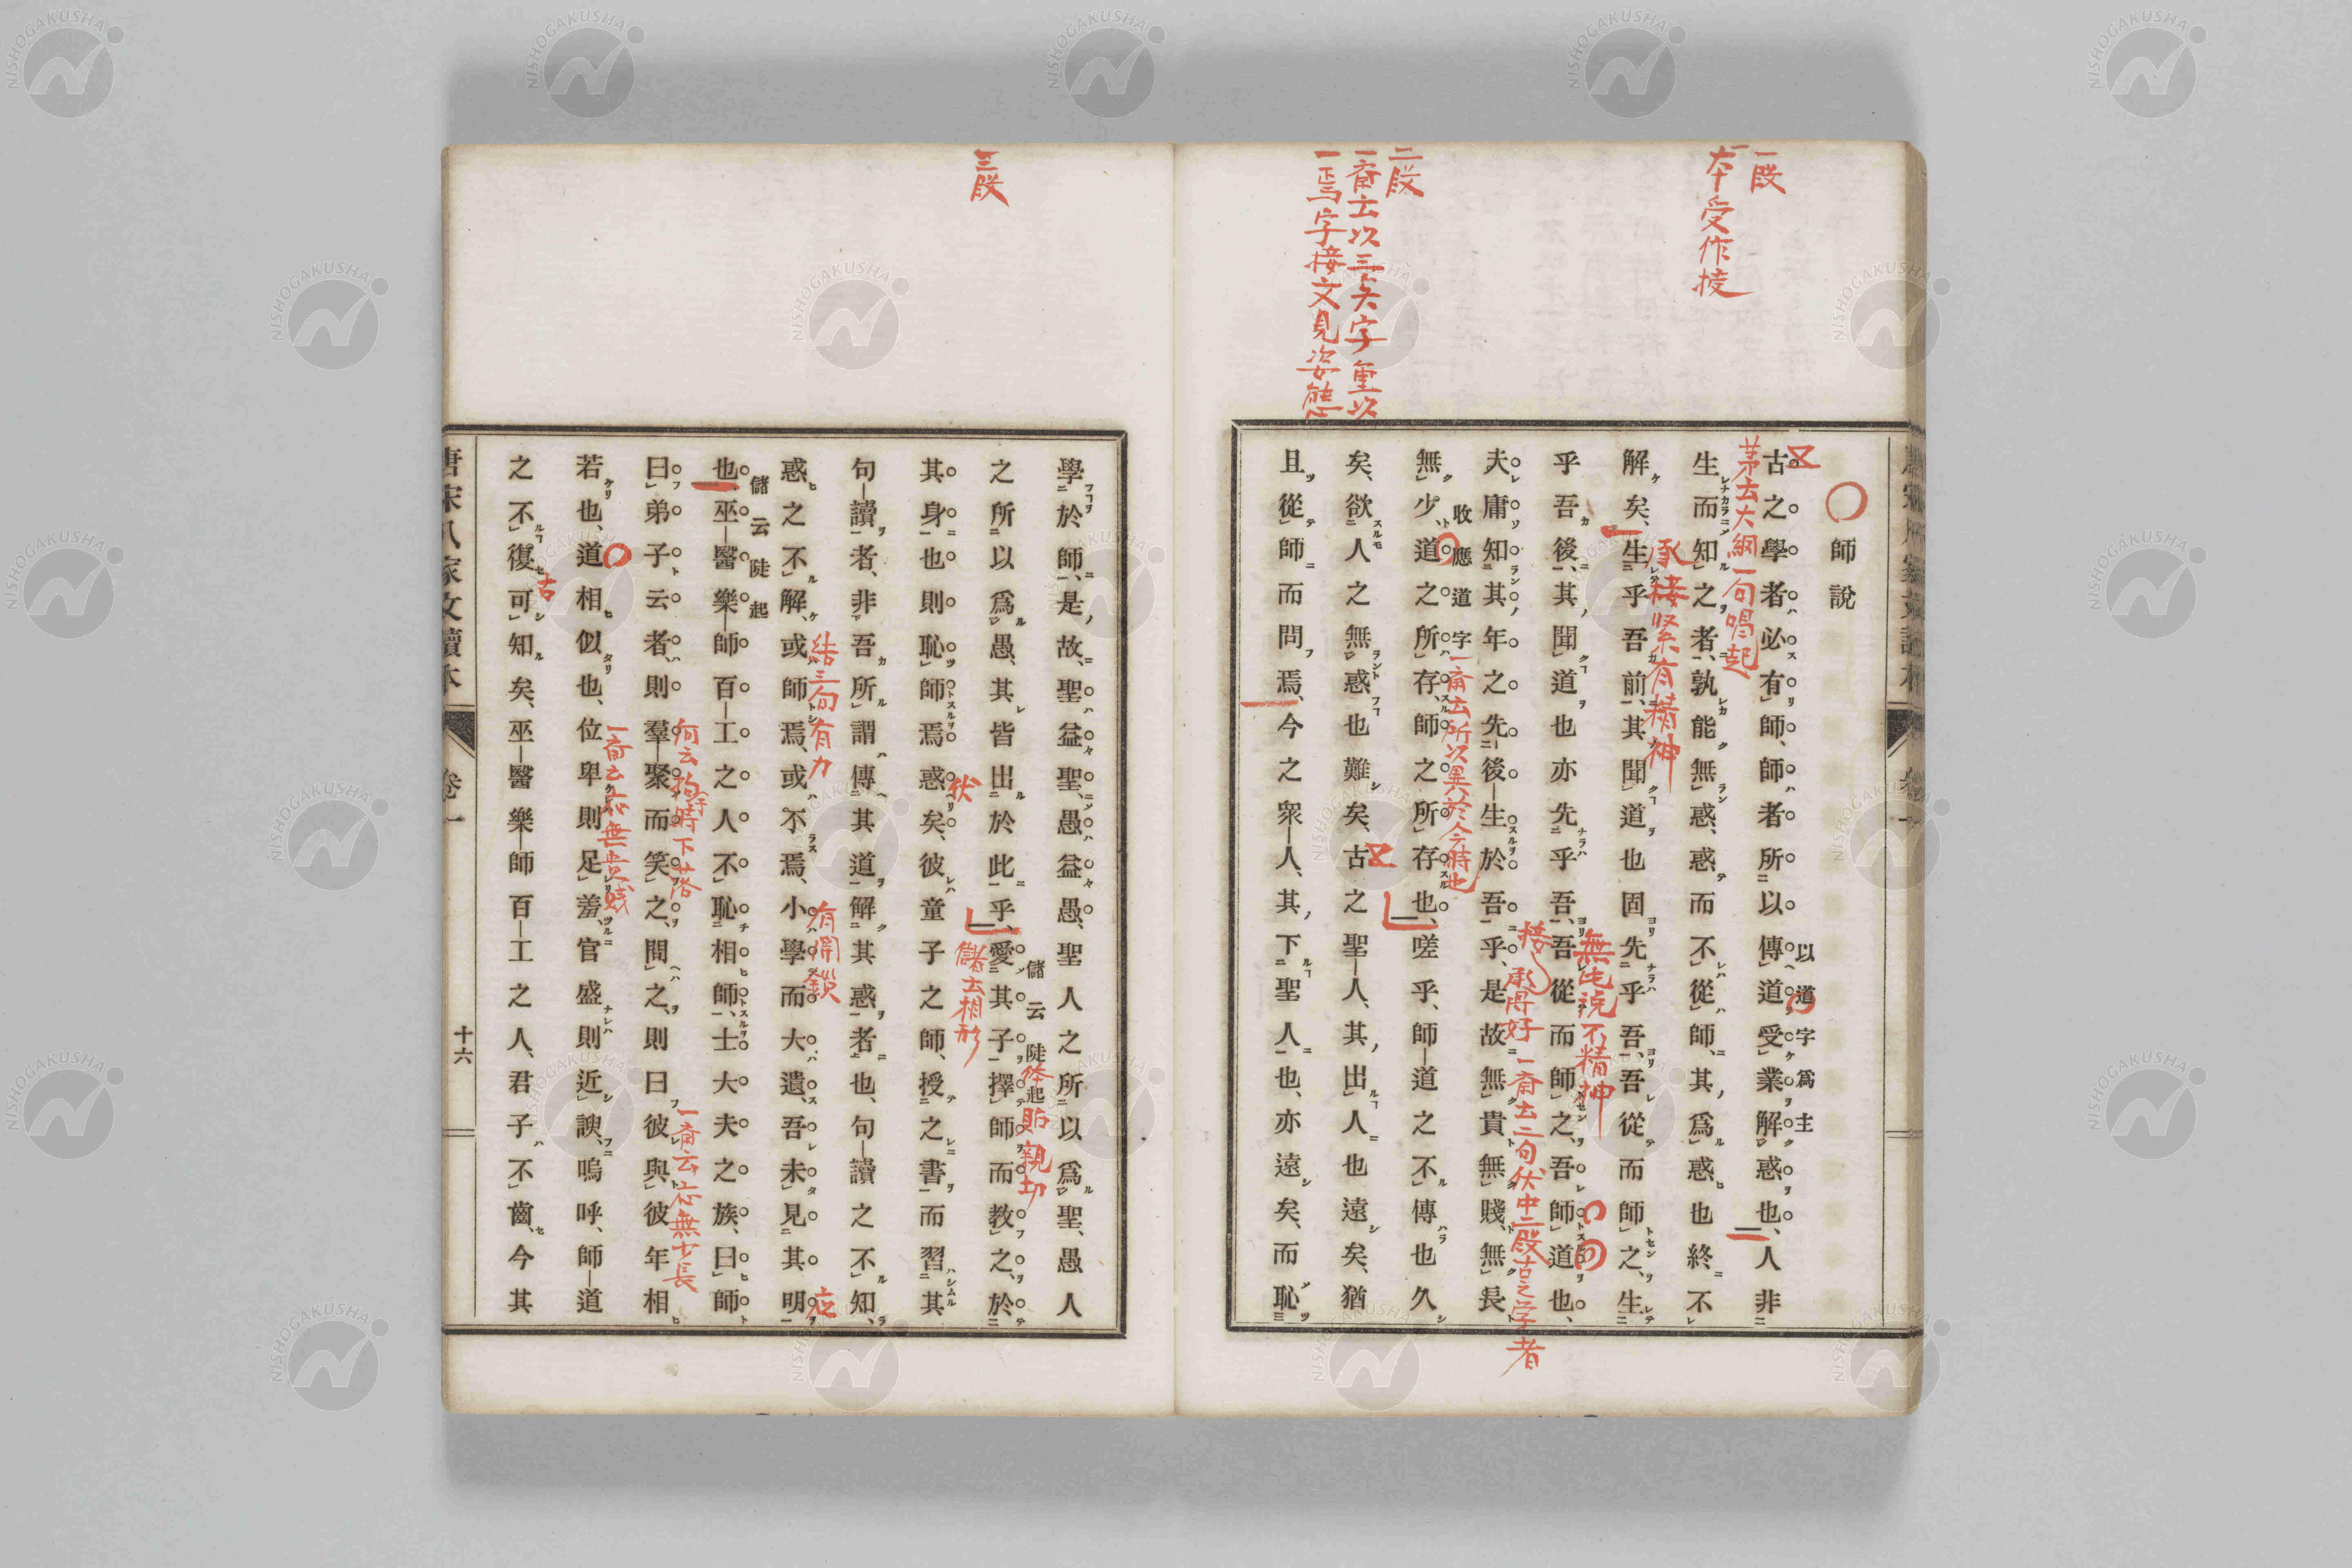 師說
古之學者必有師、師者所以傳道受業解惑也、人非
以道字爲主
生而知之者、孰能無惑、惑而不從師、其爲惑也終不
解矣、生乎吾前、其聞道也固先乎吾、吾從而師之、生
乎吾後、其聞道也亦先乎吾、吾從而師之、吾師道也、
夫庸知其年之先後生於吾乎、是故無貴無賤、無長
無少、道之所存、師之所存也、嗟乎、師道之不傳也久
收應道字
矣、欲人之無惑也難矣、古之聖人、其出人也遠矣、猶
且從師而問焉、今之衆人、其下聖人也亦遠矣、而恥
一段
本受作授
二段
一斎云以三矢字重以
一焉字接文見姿態
茅云大綱一句唱起
承接緊有精神
無此說不精神
接承得好
一斎云二句伏中二段古之学者
一斎云所以異於今時也
學於師、是故、聖益聖、愚益愚、聖人之所以爲聖、愚人
之所以爲愚、其皆出於此乎、愛其子擇師而教之、於
儲云陡起
其身也則恥師焉惑矣、彼童子之師、授之書而習其
句讀者、非吾所謂傳其道解其惑者也、句讀之不知、
惑之不解、或師焉、或不焉、小學而大遺、吾未見其明
也、巫醫樂師百工之人不恥相師、士大夫之族、曰師
儲云陡起
曰弟子云者、則羣聚而笑之、問之、則曰彼與彼年相
若也、道相似也、位卑則足羞、官盛則近諛、嗚呼、師道
之不復可知矣、巫醫樂師百工之人、君子不齒、今其
三段
貼親切
伏
儲云相形
結三句有力
有関鎖
応
一斎云応無少長
一斎云応無貴賤
古
唐宋八家文讀本
卷一
十六
NISHOGAKUSHA